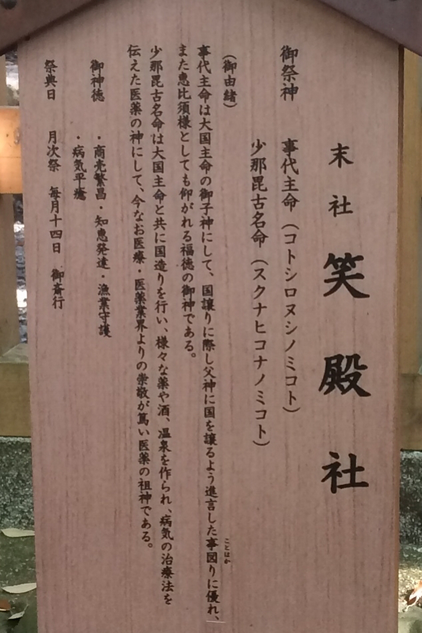 末社 笑殿社
御祭神 事代主命(コトシロヌシノミコト)
少那毘古名命(スクナヒコナノミコト)
(御由緒)
事代主命は大国主命の御子神にして、国譲りに際し父神に国を譲るよう進言した事図りに優れ、
ことはか
また恵比須様としても仰がれる福徳の御神である。
少那毘古名命は大国主命と共に国造りを行い、様々な薬や酒、温泉を作られ、病気の治療法を
伝えた医薬の神にして、今なお医療・医薬業界よりの崇敬が篤い医薬の祖神である。
御神徳 ・商売繁昌・知恵発達・漁業守護
・病気平癒
祭典日 月次祭 毎月十四日 御斎行